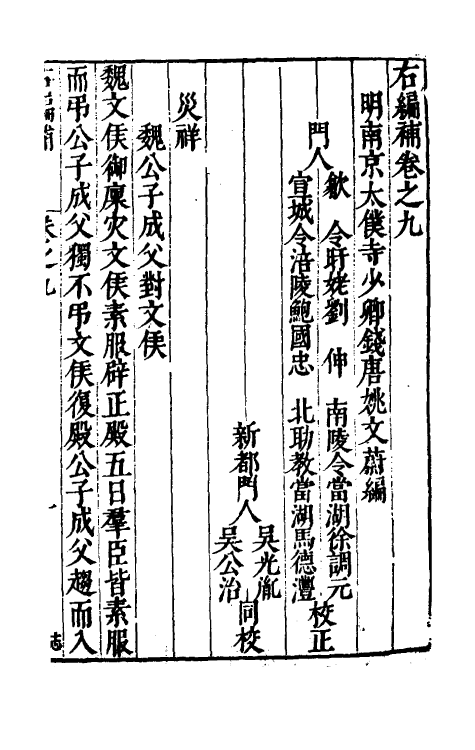 右編補卷之九
明南京太僕寺少卿錢唐姚文蔚編
門人
歙 令盱姥劉 伸 南陵令當湖徐調元
宣城令涪陵鮑國忠 北助教當湖馬德灃
校正
新都門人
吳光胤
吳公治
同校
災祥
魏公子成父對文侯
魏文侯御廩灾文侯素服辟正殿五日羣臣皆素服
而弔公子成父獨不弔文侯復殿公子成父趨而入
卷之九